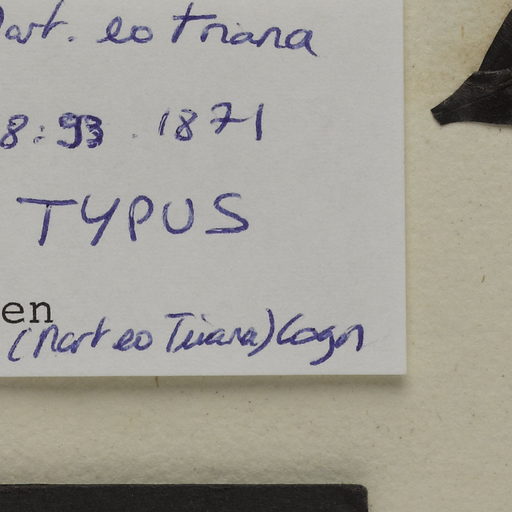 Mart. eo Triana
8:93. 1871
TYPUS
en
(Mart eo Triana) Cogn